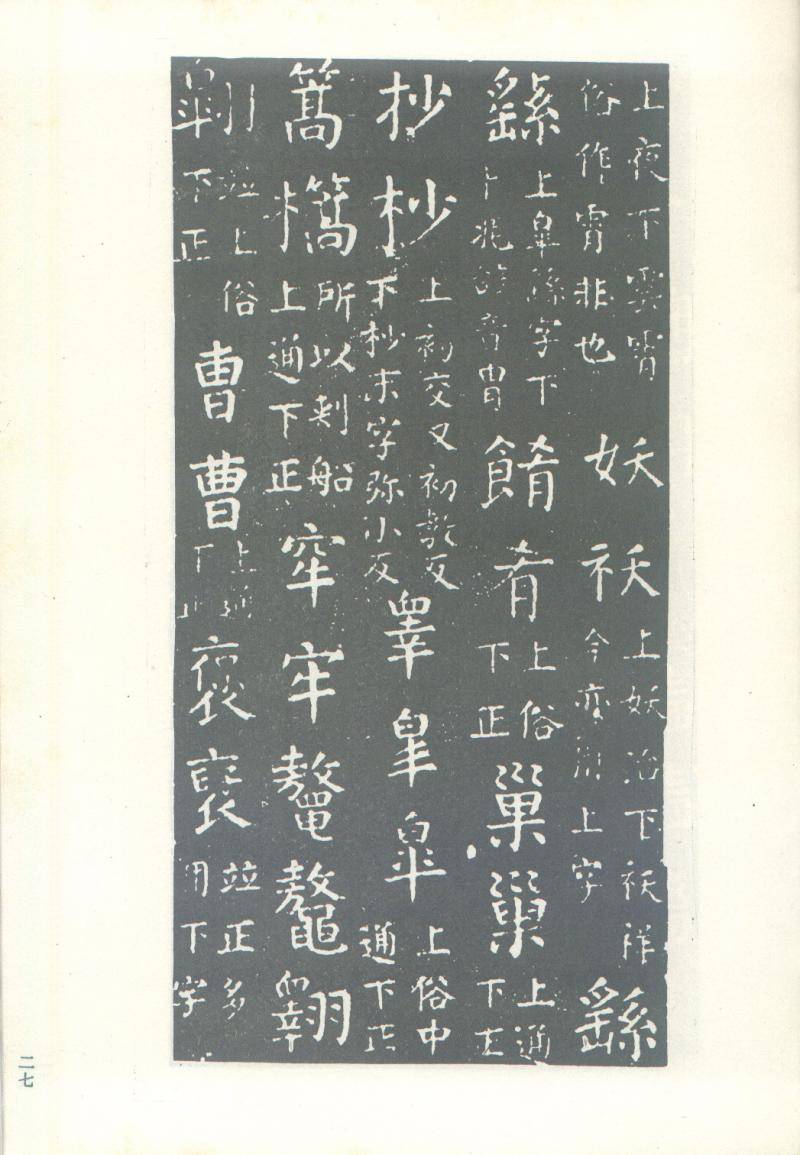 上夜下雲霄俗作霄非也妖祅上妖冶下祅祥今亦用上字繇
繇上皐繇字下卜兆辞音胄餚肴上俗下正巢巢上通下正
抄杪上初交又初教反下杪末字弥小反睪皐皋上俗中通下正
篙㰏所以刺船上通下正窂牢鼇鼇翶
翺並上俗下正曺曹上通下正褒裦並正多用下字
二七